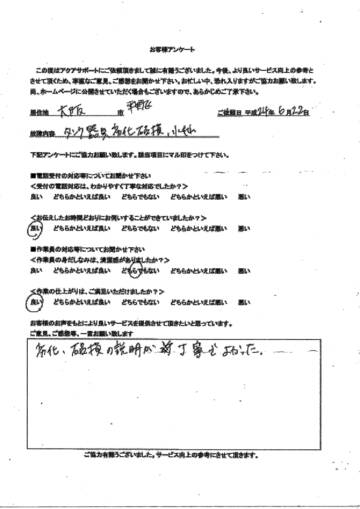 お客様アンケート
この度はアクアサポートにご依頼頂きまして誠に有難うございました。今後、より良いサービス向上の参考と
させて頂くため、率直なご意見、ご感想をお聞かせ下さい。お忙しい中、恐れ入りますがご協力お願い致します。
尚、ホームページに公開させていただく場合もございますので、あらかじめご了承下さい。
居住地 大阪 市 平野区 ご依頼日 平成24年 6月22日
故障内容 タンク器具劣化破損、
下記アンケートにご協力お願い致します。該当項目にマル印をつけて下さい。
■電話受付の対応等についてお聞かせ下さい
<受付の電話対応は、わかりやすく丁寧な対応でしたか?>
良い どちらかといえば良い どちらでもない どちらかといえば悪い 悪い
<お伝えしたお時間どおりにお伺いすることができていましたか?>
良い どちらかといえば良い どちらでもない どちらかといえば悪い 悪い
■作業員の対応等についてお聞かせ下さい
<作業員の身だしなみは、清潔感がありましたか?>
良い どちらかといえば良い どちらでもない どちらかといえば悪い 悪い
<作業の仕上がりは、ご満足いただけましたか?>
良い どちらかといえば良い どちらでもない どちらかといえば悪い 悪い
お客様のお声をもとにより良いサービスを提供させて頂きたいと思っています。
ご意見、ご感想等、一言お願い致します
劣化、破損の説明が 丁寧でよかった。
ご協力有難うございました。サービス向上の参考にさせて頂きます。